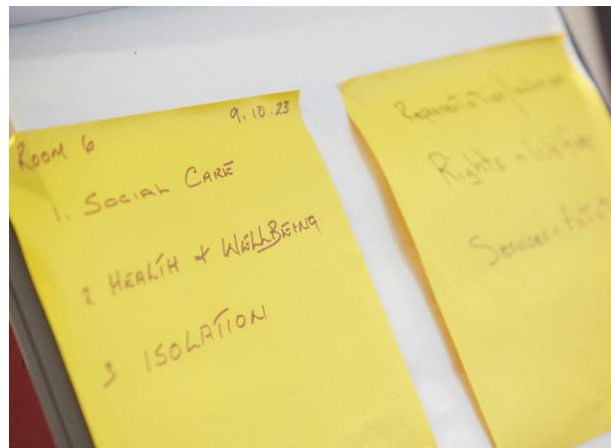 Room 6 9.10.23
1. SOCIAL CARE
2 HEALTH + WELLBEING
3 ISOLATION
Rights + Welfare
Services +